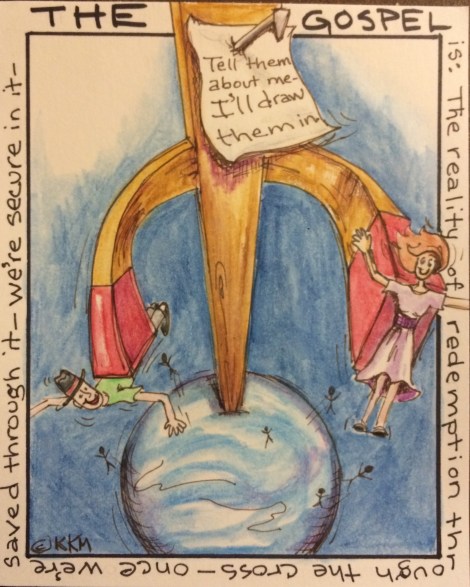 THE GOSPEL
is: The reality of redemption through the cross - once we're saved through it - we're secure in it -
Tell them
about me-
I'll draw
them in
©KKM